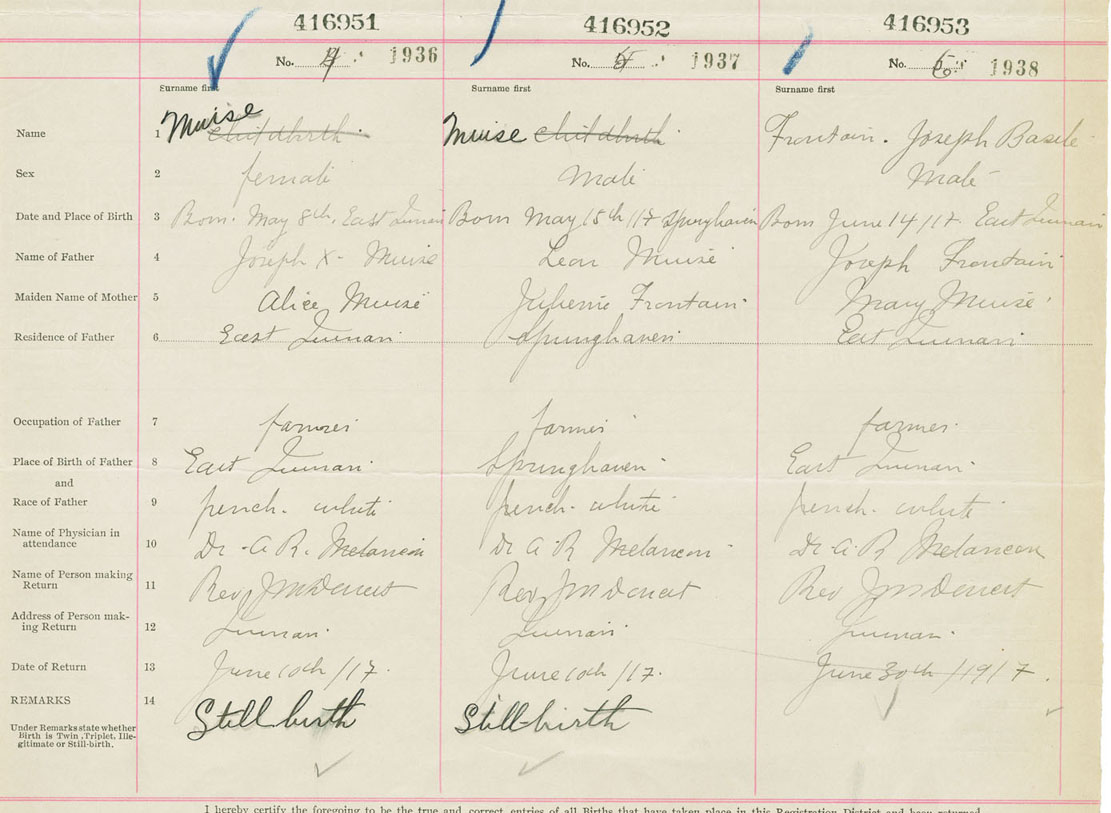 416951 416952 416953
No. 4 1936 No. 5 1937 No. 6 1938
Surname first Surname first Surname first
Name 1 Muise Childbirth Muise Childbirth Frontain. Joseph Basile
Sex 2 female Male Male
Date and Place of Birth 3 Born. May 8th, East Born May 15th /17 Springhaven Born June 14/17. East
Name of Father 4 Joseph X- Muise Leon Muise Joseph Frontain
Maiden Name of Mother 5 Alice Muise Frontain Mary Muise
Residence of Father 6 East Springhaven East
Occupation of Father 7 farmer farmer farmer
Place of Birth of Father 8 East Springhaven East
and
Race of Father 9 french. white french. white french. white
Name of Physician in
attendance 10 Dr. A R. Melancon Dr A R Melancon Dr A R Melancon
Name of Person making
Return 11 Rev J M Rev J M Rev J M
Address of Person mak-
ing Return 12
Date of Return 13 June 10th /17. June 10th /17. June 30th /1917.
REMARKS 14 Still birth Still-birth
Under Remarks state whether
Birth is Twin, Triplet, Ille-
gitimate or Still-birth.
I hereby certify the foregoing to be the true and correct entries of all Births that have taken place in this Registration District and been returned